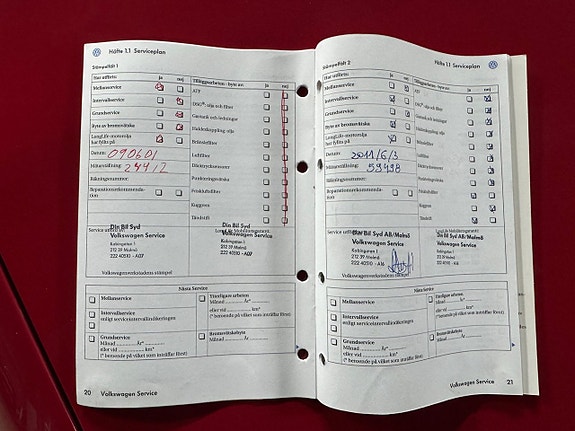 Häfte 1.1 Serviceplan
Stämpelfält 1
Har utförts: ja nej
Tilläggsarbeten - byte av: ja nej
Mellanservice
ATF
Intervallservice
DSG®-olja och filter
Grundservice
Gastank och ledningar
Byte av bromsvätska
Haldexkoppling olja
LongLife motorolja
har fyllts på
Bränslefilter
Datum: 090601
Luftfilter
Mätarställning: 24412
Räkningsnummer:
Punkteringsvätska
Reparationsrekommenda-
tion
Friskluftsfilter
Kuggrem
Tändstift
Service utförd av:
LongLife Mobilitetsgaranti:
Din Bil Syd
Volkswagen Service
Kabingatan 1
212 39 Malmö
222 40510 - A07
Din Bil Syd
Volkswagen Service
Kabingatan 1
212 39 Malmö
222 40510 - A07
Volkswagenverkstadens stämpel
Nästa Service
Mellanservice
Ytterligare arbeten
Månad ........../år*..........
Intervallservice
enligt serviceintervallindikeringen
eller vid .......... km*
(* beroende på vilket som inträffar först)
Grundservice
Månad ........../år*..........
eller vid .......... km*
(* beroende på vilket som inträffar först)
Bromsvätskebyte
Månad ........../år..........
20 Volkswagen Service
Häfte 1.1 Serviceplan
Stämpelfält 2
Har utförts: ja nej
Tilläggsarbeten - byte av: ja nej
Mellanservice
ATF
Intervallservice
DSG®-olja och filter
Grundservice
Gastank och ledningar
Byte av bromsvätska
Haldexkoppling olja
LongLife motorolja
har fyllts på
Bränslefilter
Datum: 2011/6/3
Luftfilter
Mätarställning: 59498
Räkningsnummer:
Punkteringsvätska
Reparationsrekommenda-
tion
Friskluftsfilter
Kuggrem
Tändstift
Service utförd av:
LongLife Mobilitetsgaranti:
Din Bil Syd AB/Malmö
Volkswagen Service
Kabingatan 1
212 39 Malmö
222 40510 - A16
Din Bil Syd AB/Malmö
Volkswagen Service
Kabingatan 1
212 39 Malmö
222 40510 - A16
Volkswagenverkstadens stämpel
Nästa Service
Mellanservice
Ytterligare arbeten
Månad ........../år*..........
Intervallservice
enligt serviceintervallindikeringen
eller vid .......... km*
(* beroende på vilket som inträffar först)
Grundservice
Månad ........../år*..........
eller vid .......... km*
(* beroende på vilket som inträffar först)
Bromsvätskebyte
Månad ........../år..........
Volkswagen Service 21